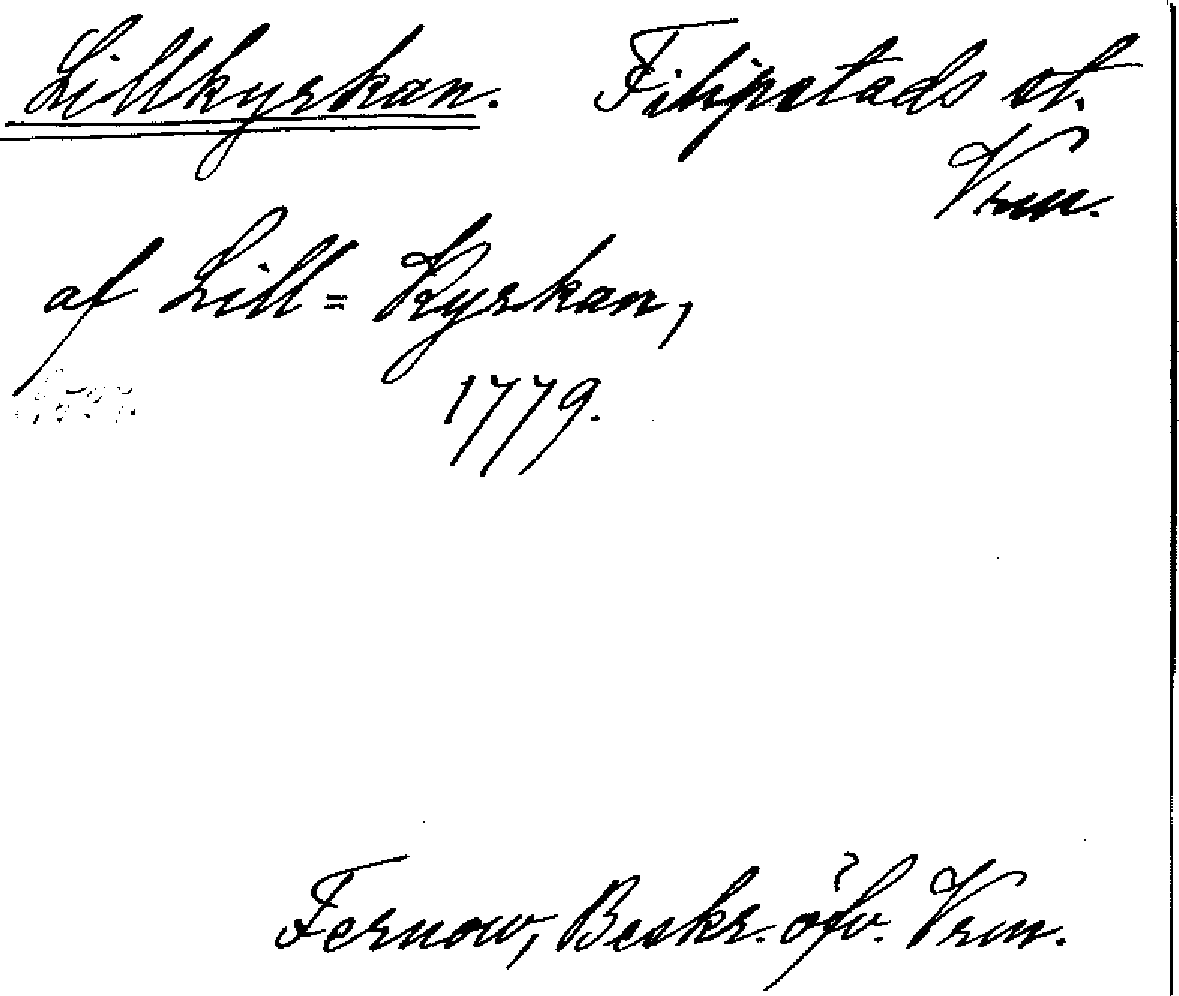 Lillkyrkan. Filipstads st.
Vrm.
af Lill=Kyrkan,
1779.
Fernow, Beskr. öfv. Vrm.